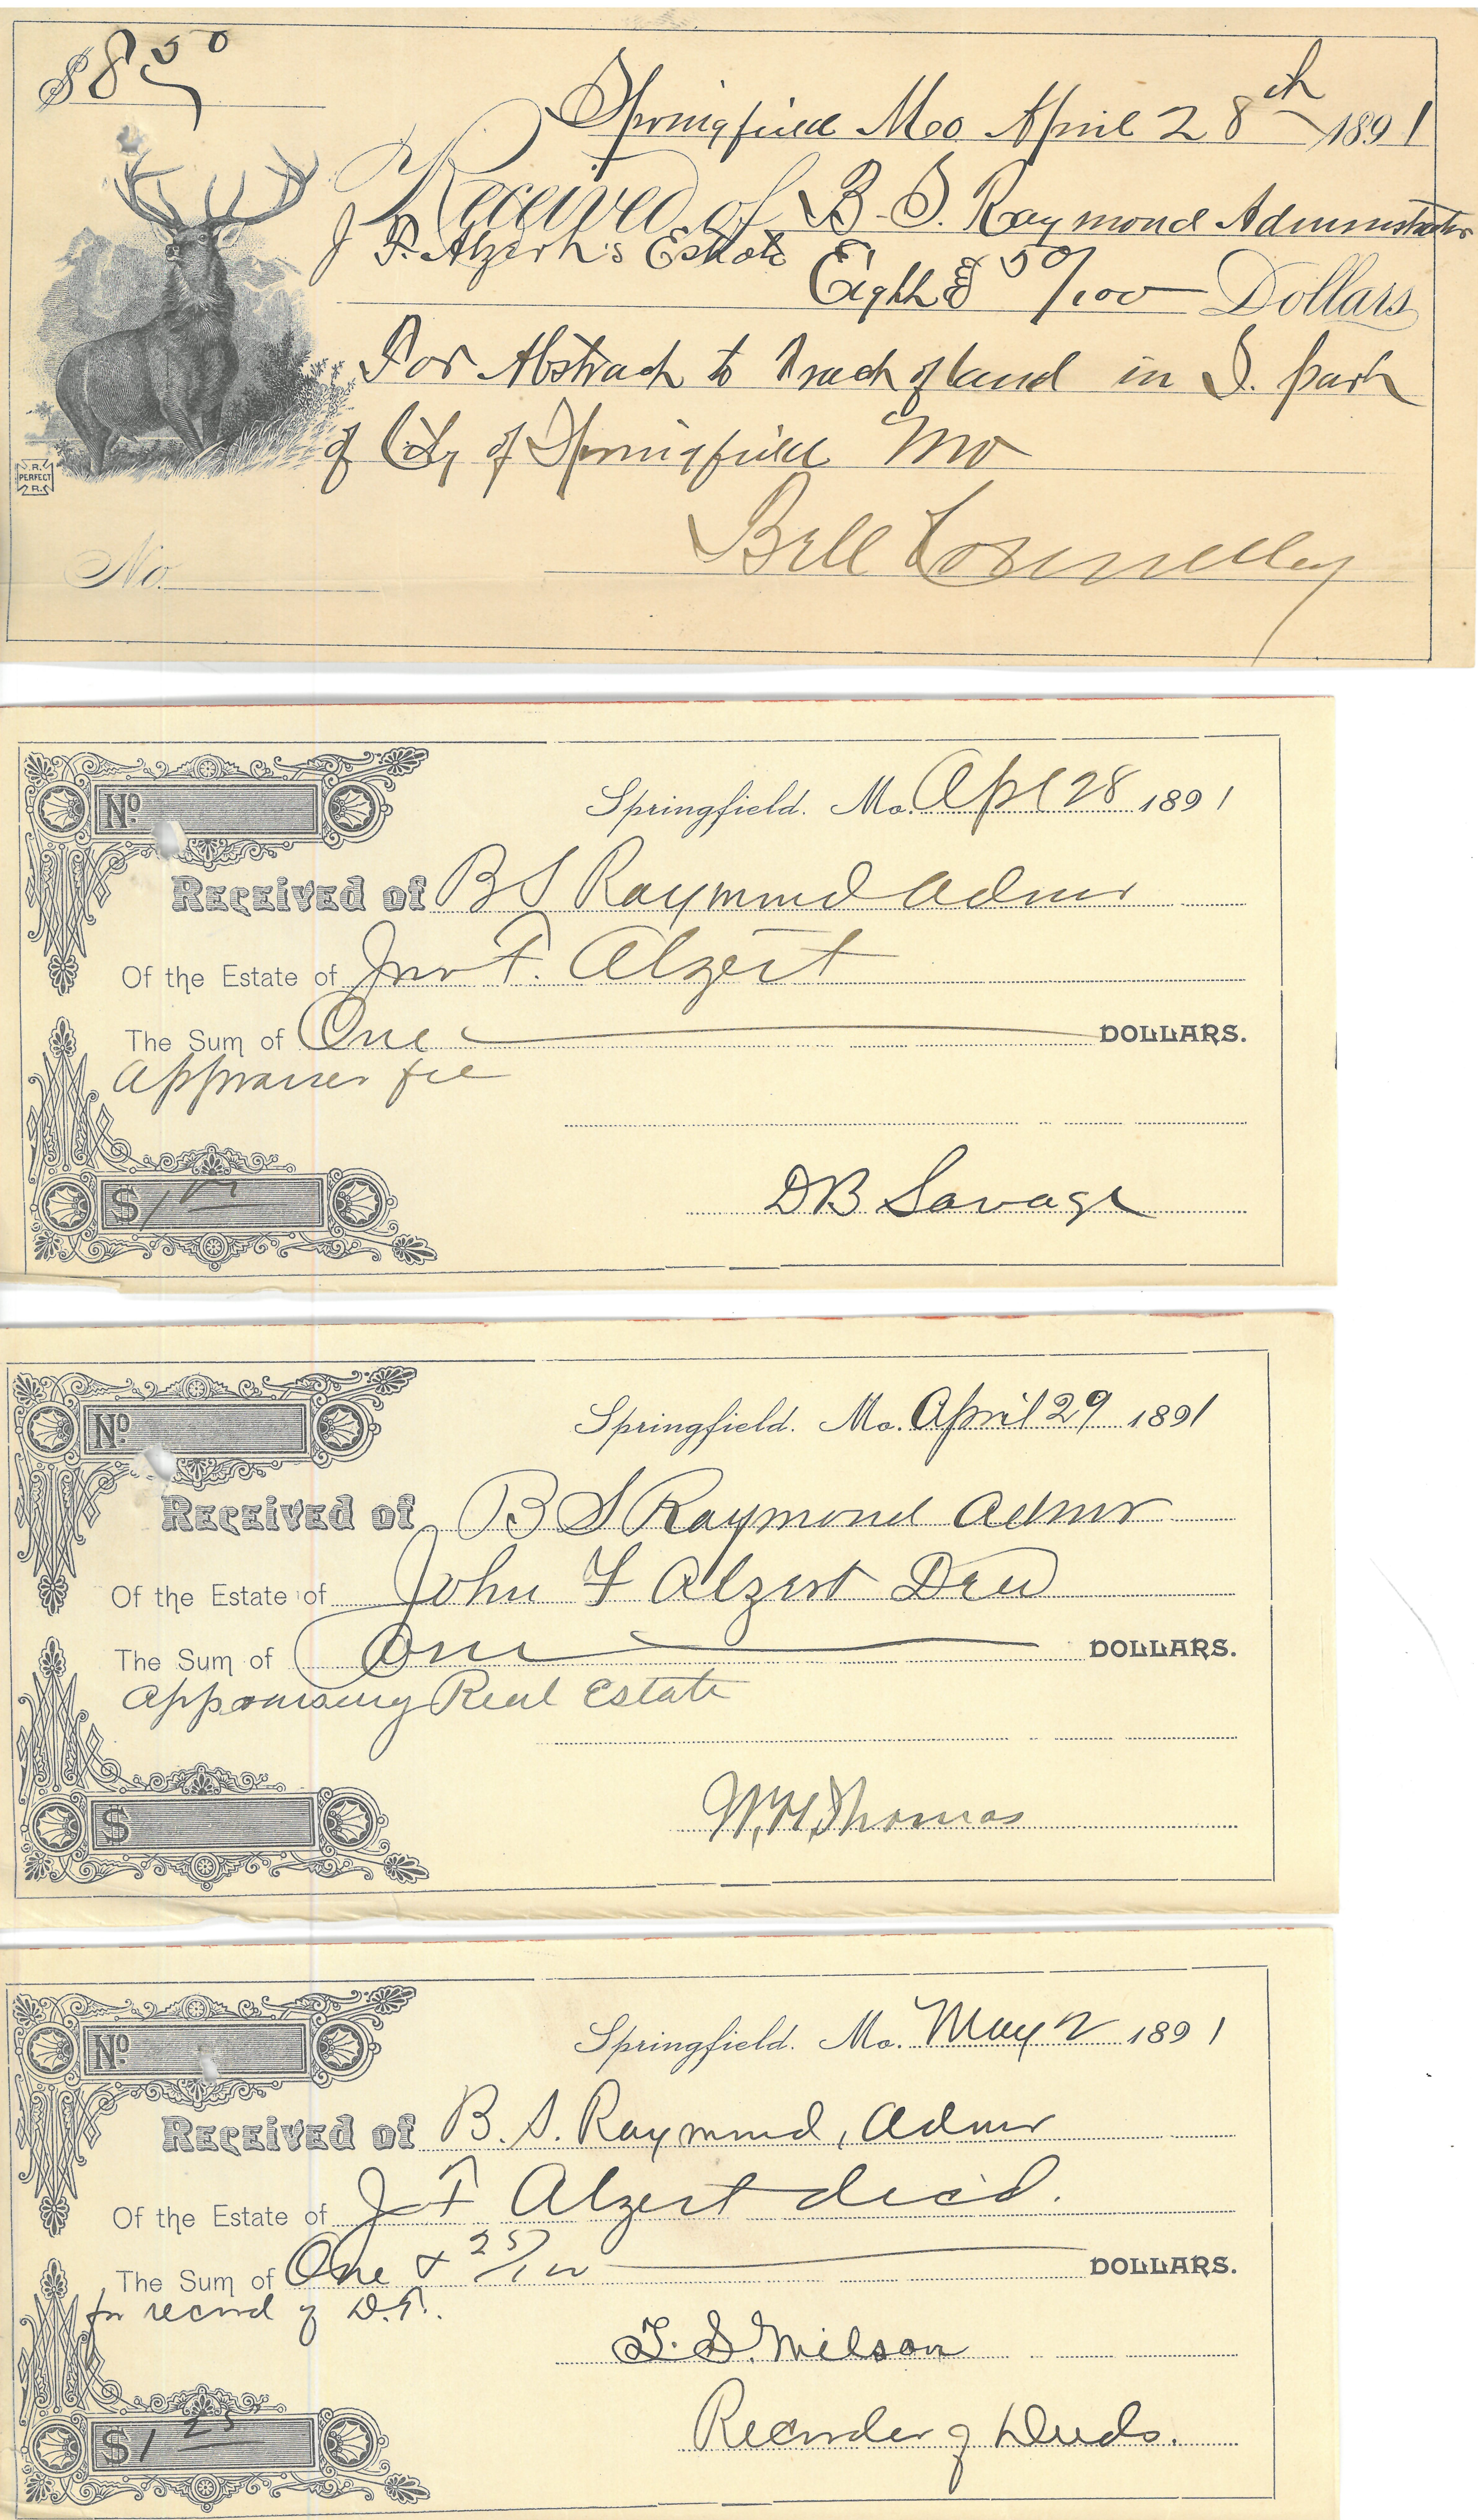 $8 50
Springfield Mo April 28th 1891
Received of B. S. Raymond Administrator
J F. Alzert's Estate
Eight & 50/100 Dollars
For Abstract to Tract of land in S. part
of City of Springfield Mo
V.R.
PERFECT
R.
No.
Bell Connelley
No.
Springfield. Mo. Apl 28 1891
Received of B S Raymond Admr
Of the Estate of Jno F. Alzert
The Sum of One DOLLARS.
Appraiser fee
$1 00
DB Savage
No.
Springfield. Mo. April 29 1891
Received of B S Raymond Admr
Of the Estate of John F Alzert Decd
The Sum of One DOLLARS.
Appraising Real Estate
$
W. H. Thomas
No.
Springfield. Mo. May 2 1891
Received of B. S. Raymond, Admr
Of the Estate of J F Alzert decd.
The Sum of One & 25/100 DOLLARS.
for record of D.T.
T. S. Wilson
$1 25
Recorder of Deeds.